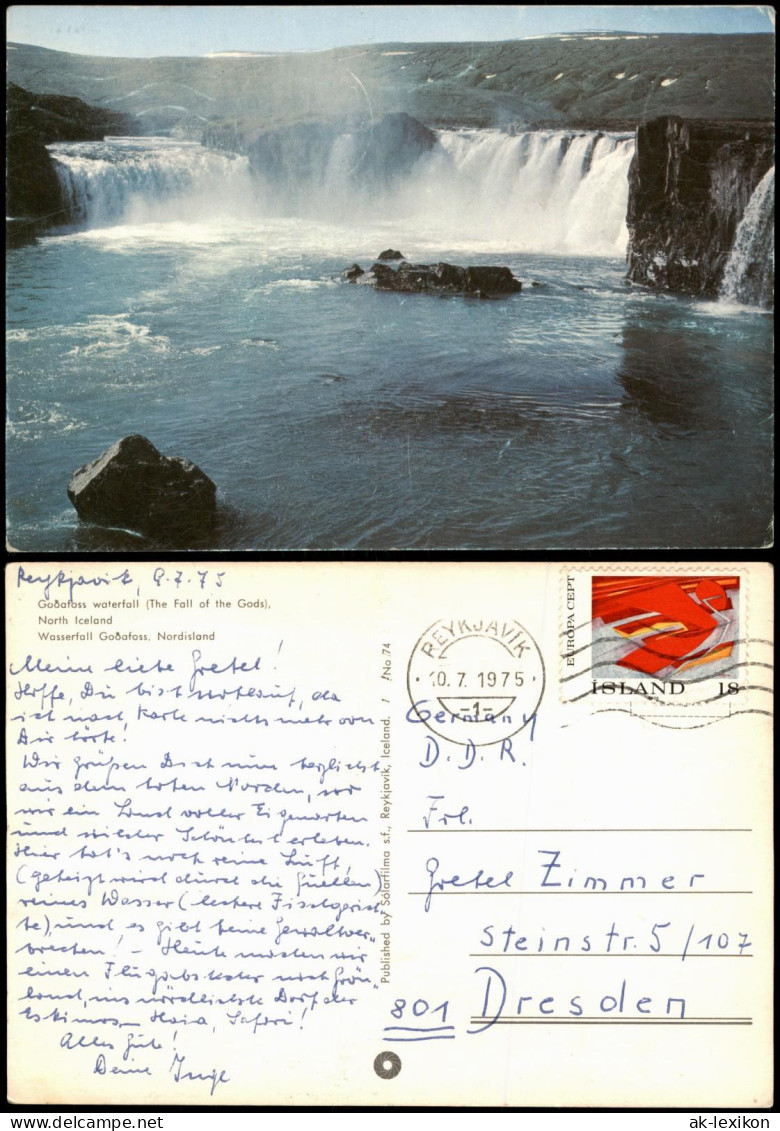 Reykjavik, 9.7.75
Goðafoss waterfall (The Fall of the Gods),
North Iceland
Wasserfall Goðafoss, Nordisland
Meine liebe Gretel!
Hoffe, Du bist wohlauf, da
ich nach Karte nichts mehr von
Dir hörte!
Wir grüßen Dich nun herzlichst
aus dem hohen Norden, wo
wir ein Land voller Eigenarten
und wilder Schönheit erleben.
Hier hat's noch reine Luft,
(geheizt wird durch die Quellen)
reines Wasser (leckere Fischgerich
te), und es gibt keine Gewaltver"
brechen! – Heute machen wir
einen Flugabstecher nach Grön"
land, ins nördlichste Dorf der
Eskimos – Heia, Safari!
Alles Gute!
Deine Inge
Published by Sólarfilma s.f., Reykjavík, Iceland. / /No 74
REYKJAVÍK
10.7.1975
-1-
EUROPA CEPT
ÍSLAND 18
Germany
D.D.R.
Frl.
Gretel Zimmer
Steinstr. 5/107
801 Dresden
www.delcampe.net
ak-lexikon